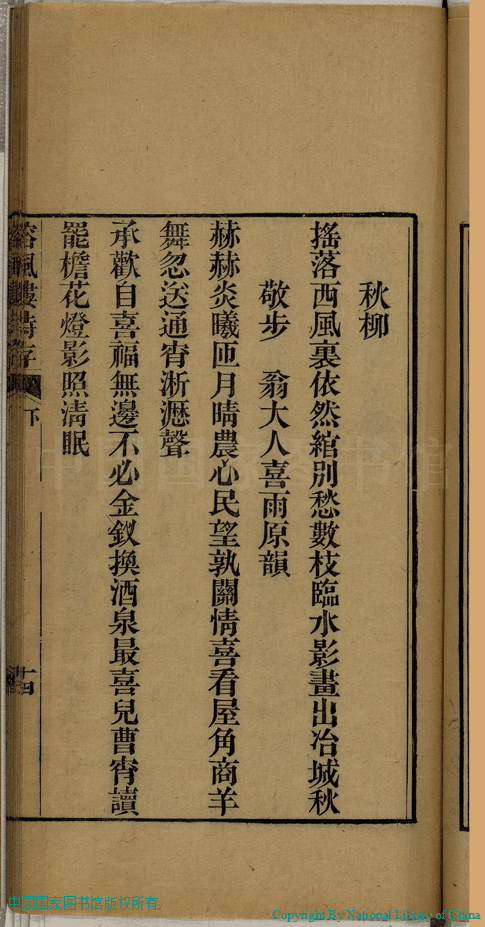 秋柳
搖落西風裏依然綰別愁數枝臨水影畫出冶城秋
敬步 翁大人喜雨原韻
赫赫炎曦匝月晴農心民望孰關情喜看屋角商羊
舞忽送通宵淅瀝聲
承歡自喜福無邊不必金釵換酒泉最喜兒曹宵讀
罷檐花燈影照清眠
風樓詩存
下
十四
中国国家图书馆版权所有
Copyright By National Library of China